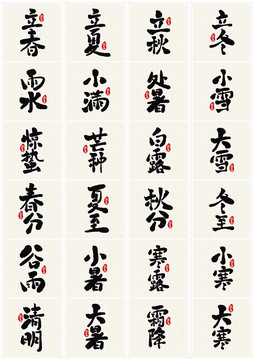 立春
立夏
立秋
立冬
雨水
小满
处暑
小雪
惊蛰
芒种
白露
大雪
春分
夏至
秋分
冬至
谷雨
小暑
寒露
小寒
清明
大暑
霜降
大寒